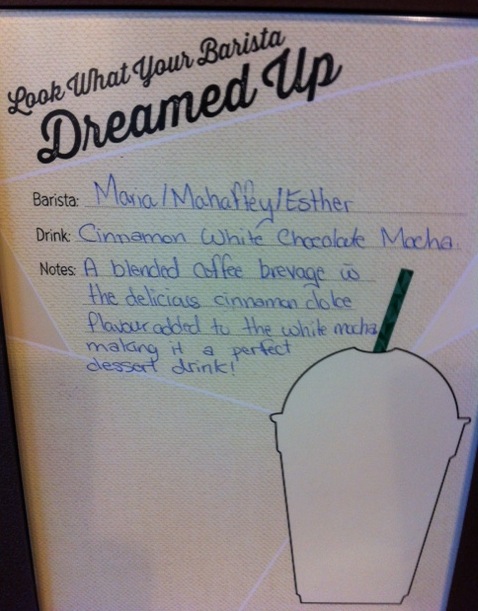 Look What Your Barista
Dreamed Up
Barista: Maria/Mahaffey/Esther
Drink: Cinnamon White Chocolate Mocha.
Notes: A blended coffee brevage w
the delicious cinnamon dolce
flavour added to the white mocha
making it a perfect
dessert drink!